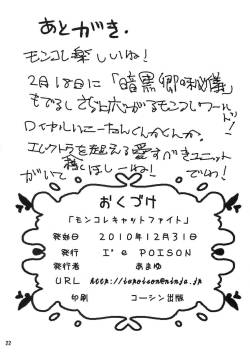 あとがき.
モンコレ楽しいね!
2月18日に「暗黒卿の秘儀」
もでるし さらに広がるモンコレワールド!
ロイヤルに
エレクトラを超える愛すべきユニット
が
でわ!
おくづけ
「モンコレキャットファイト」
発効日 2010年12月31日
発行 I'e POISON
発行者 あまゆ
URL http://iepoison@ninja.jp
印刷 コーシン出版
22